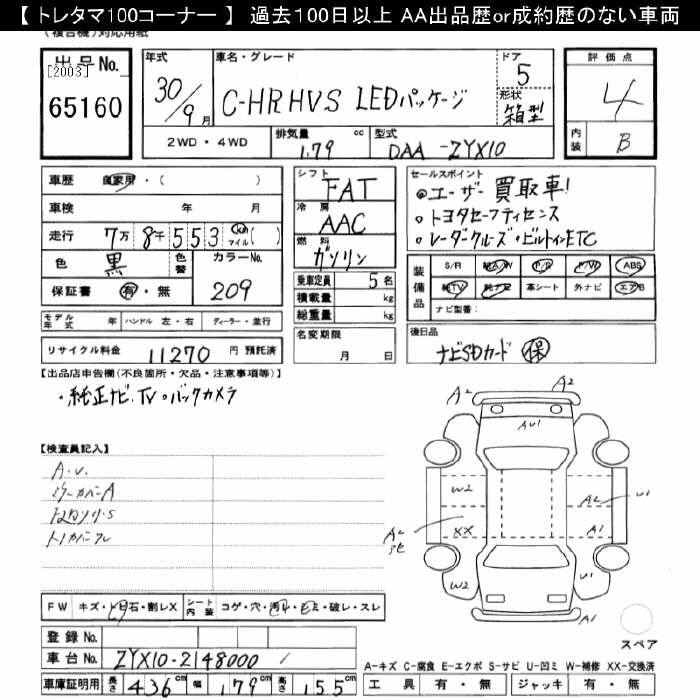 【 トレタマ100コーナー 】 過去100日以上 AA出品歴or成約歴のない車両
(複合機)対応用紙
出品No.
[2003]
65160
年式 30/9月
車名・グレード C-HR HV S LEDパッケージ
ドア 5
形状 箱型
2WD・4WD
排気量 1.79 cc
型式 DAA-ZYX10
評価点 4
内装 B
車歴 自家用・( )
車検 年 月
走行 7万8千553 Km マイル( )
色 黒 色替 カラーNo. 209
保証書 有・無
モデル年式 年 ハンドル 左・右 ディーラー・並行
リサイクル料金 11270 円 預託済
シフト FAT
冷房 AAC
燃料 ガソリン
乗車定員 5名
積載量 kg
総重量 kg
名変期限 月 日
セールスポイント
◎ユーザー買取車!
・トヨタセーフティセンス
・レーダークルーズ・ビルトインETC
装備品 S/R 純A/W P/S P/W ABS
純TV 純ナビ 革シート 外ナビ エアB
ナビ型番:
後日品
ナビSDカード 保
【出品店申告欄(不良箇所・欠品・注意事項等)】
・純正ナビ、TV・バックカメラ
【検査員記入】
A.U.
ミラーカバーA
A2
A2
AU1
W2
A2
U1
XX
A2
A1
W2
U1
A1
スペア
FW キズ・トビ石・割レX シート内装 コゲ・穴・汚レ・破レ・スレ
登録No.
車台No. ZYX10-2148000
車庫証明用 長さ 436cm 幅 179cm 高さ 155cm
A-キズ C-腐食 E-エクボ S-サビ U-凹ミ W-補修 XX-交換済
工具 有・無 ジャッキ 有・無